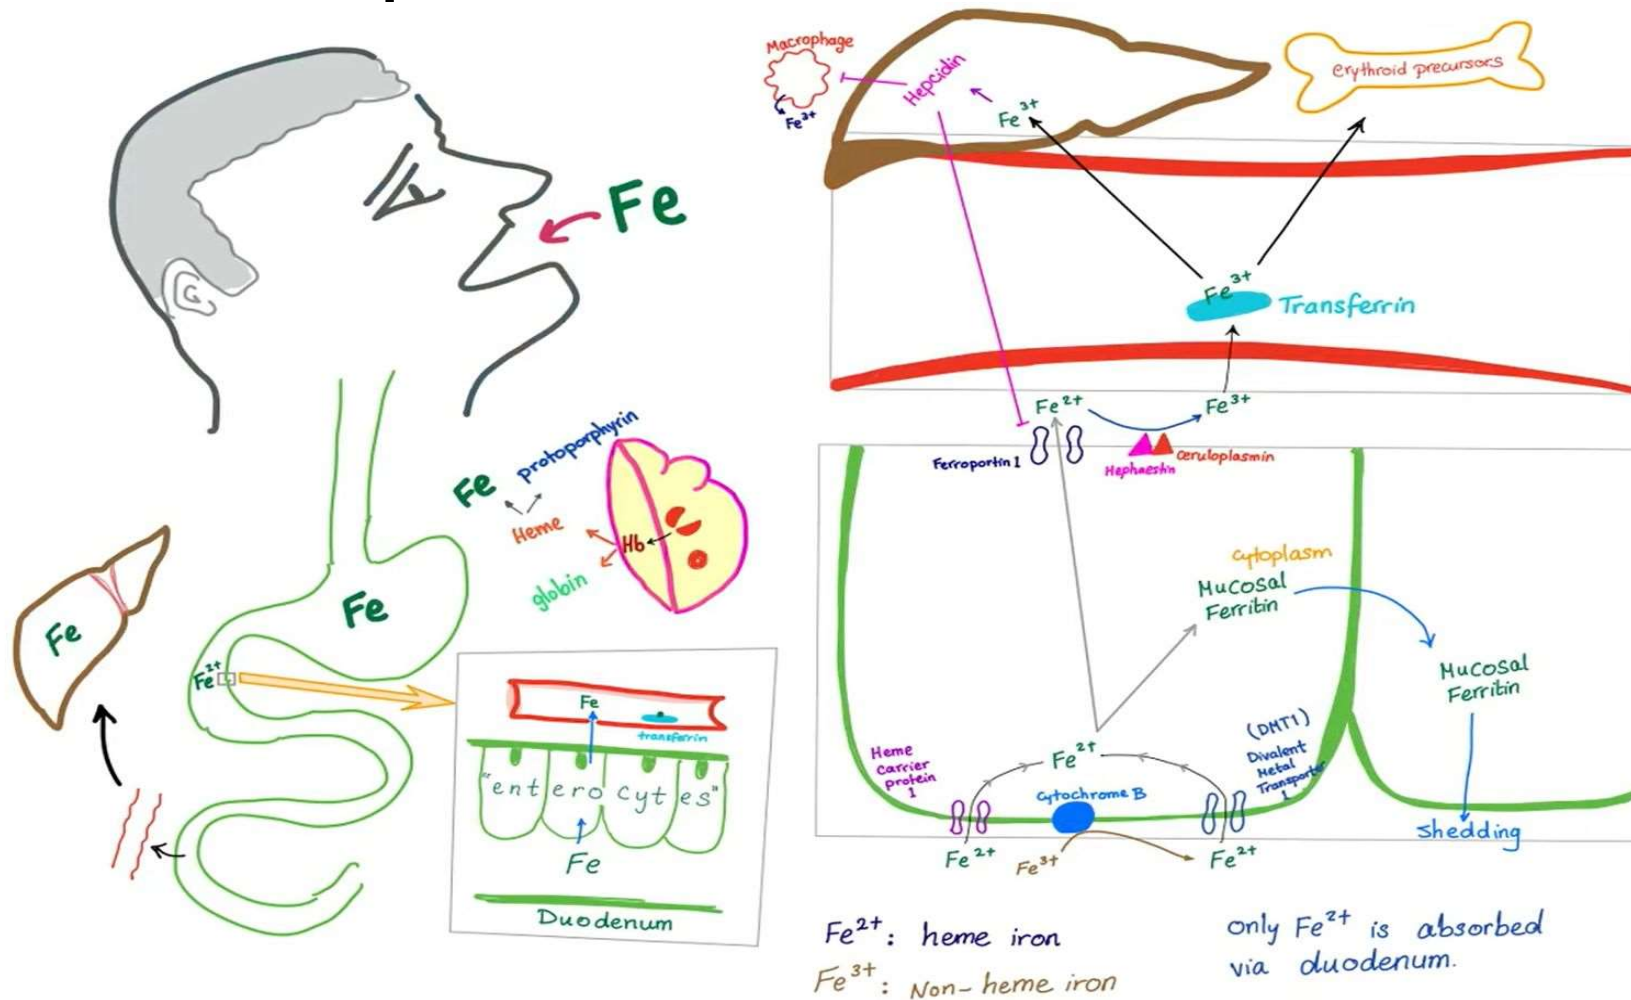 Fe
Fe
protoporphyrin
Heme
Hb
globin
Fe
Fe
Fe2+
Fe
transferrin
"enterocytes"
Fe
Duodenum
Macrophage
Fe3+
Hepcidin
Fe3+
erythroid precursors
Fe3+
Transferrin
Fe2+
Fe3+
Ferroportin 1
Hephaestin
ceruloplasmin
cytoplasm
Mucosal
Ferritin
Mucosal
Ferritin
Heme
Carrier
protein
1
Fe2+
(DMT1)
Divalent
Metal
Transporter
1
Cytochrome B
Fe2+
Fe3+
Fe2+
Shedding
Fe2+: heme iron
Fe3+: Non-heme iron
only Fe2+ is absorbed
via duodenum.